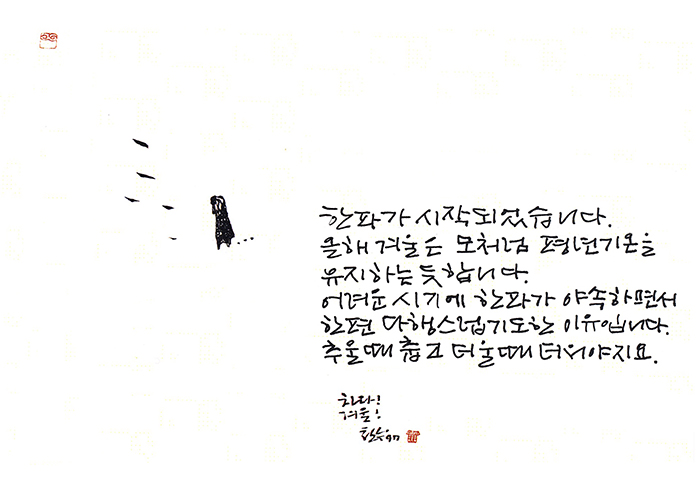 한파가 시작되었습니다.
올해 겨울은 모처럼 평년기온을
유지하는 듯합니다.
어려운 시기에 한파가 야속하면서
한편 다행스럽기도한 이유입니다.
추울때 춥고 더울때 더워야지요.
차다!
겨울!